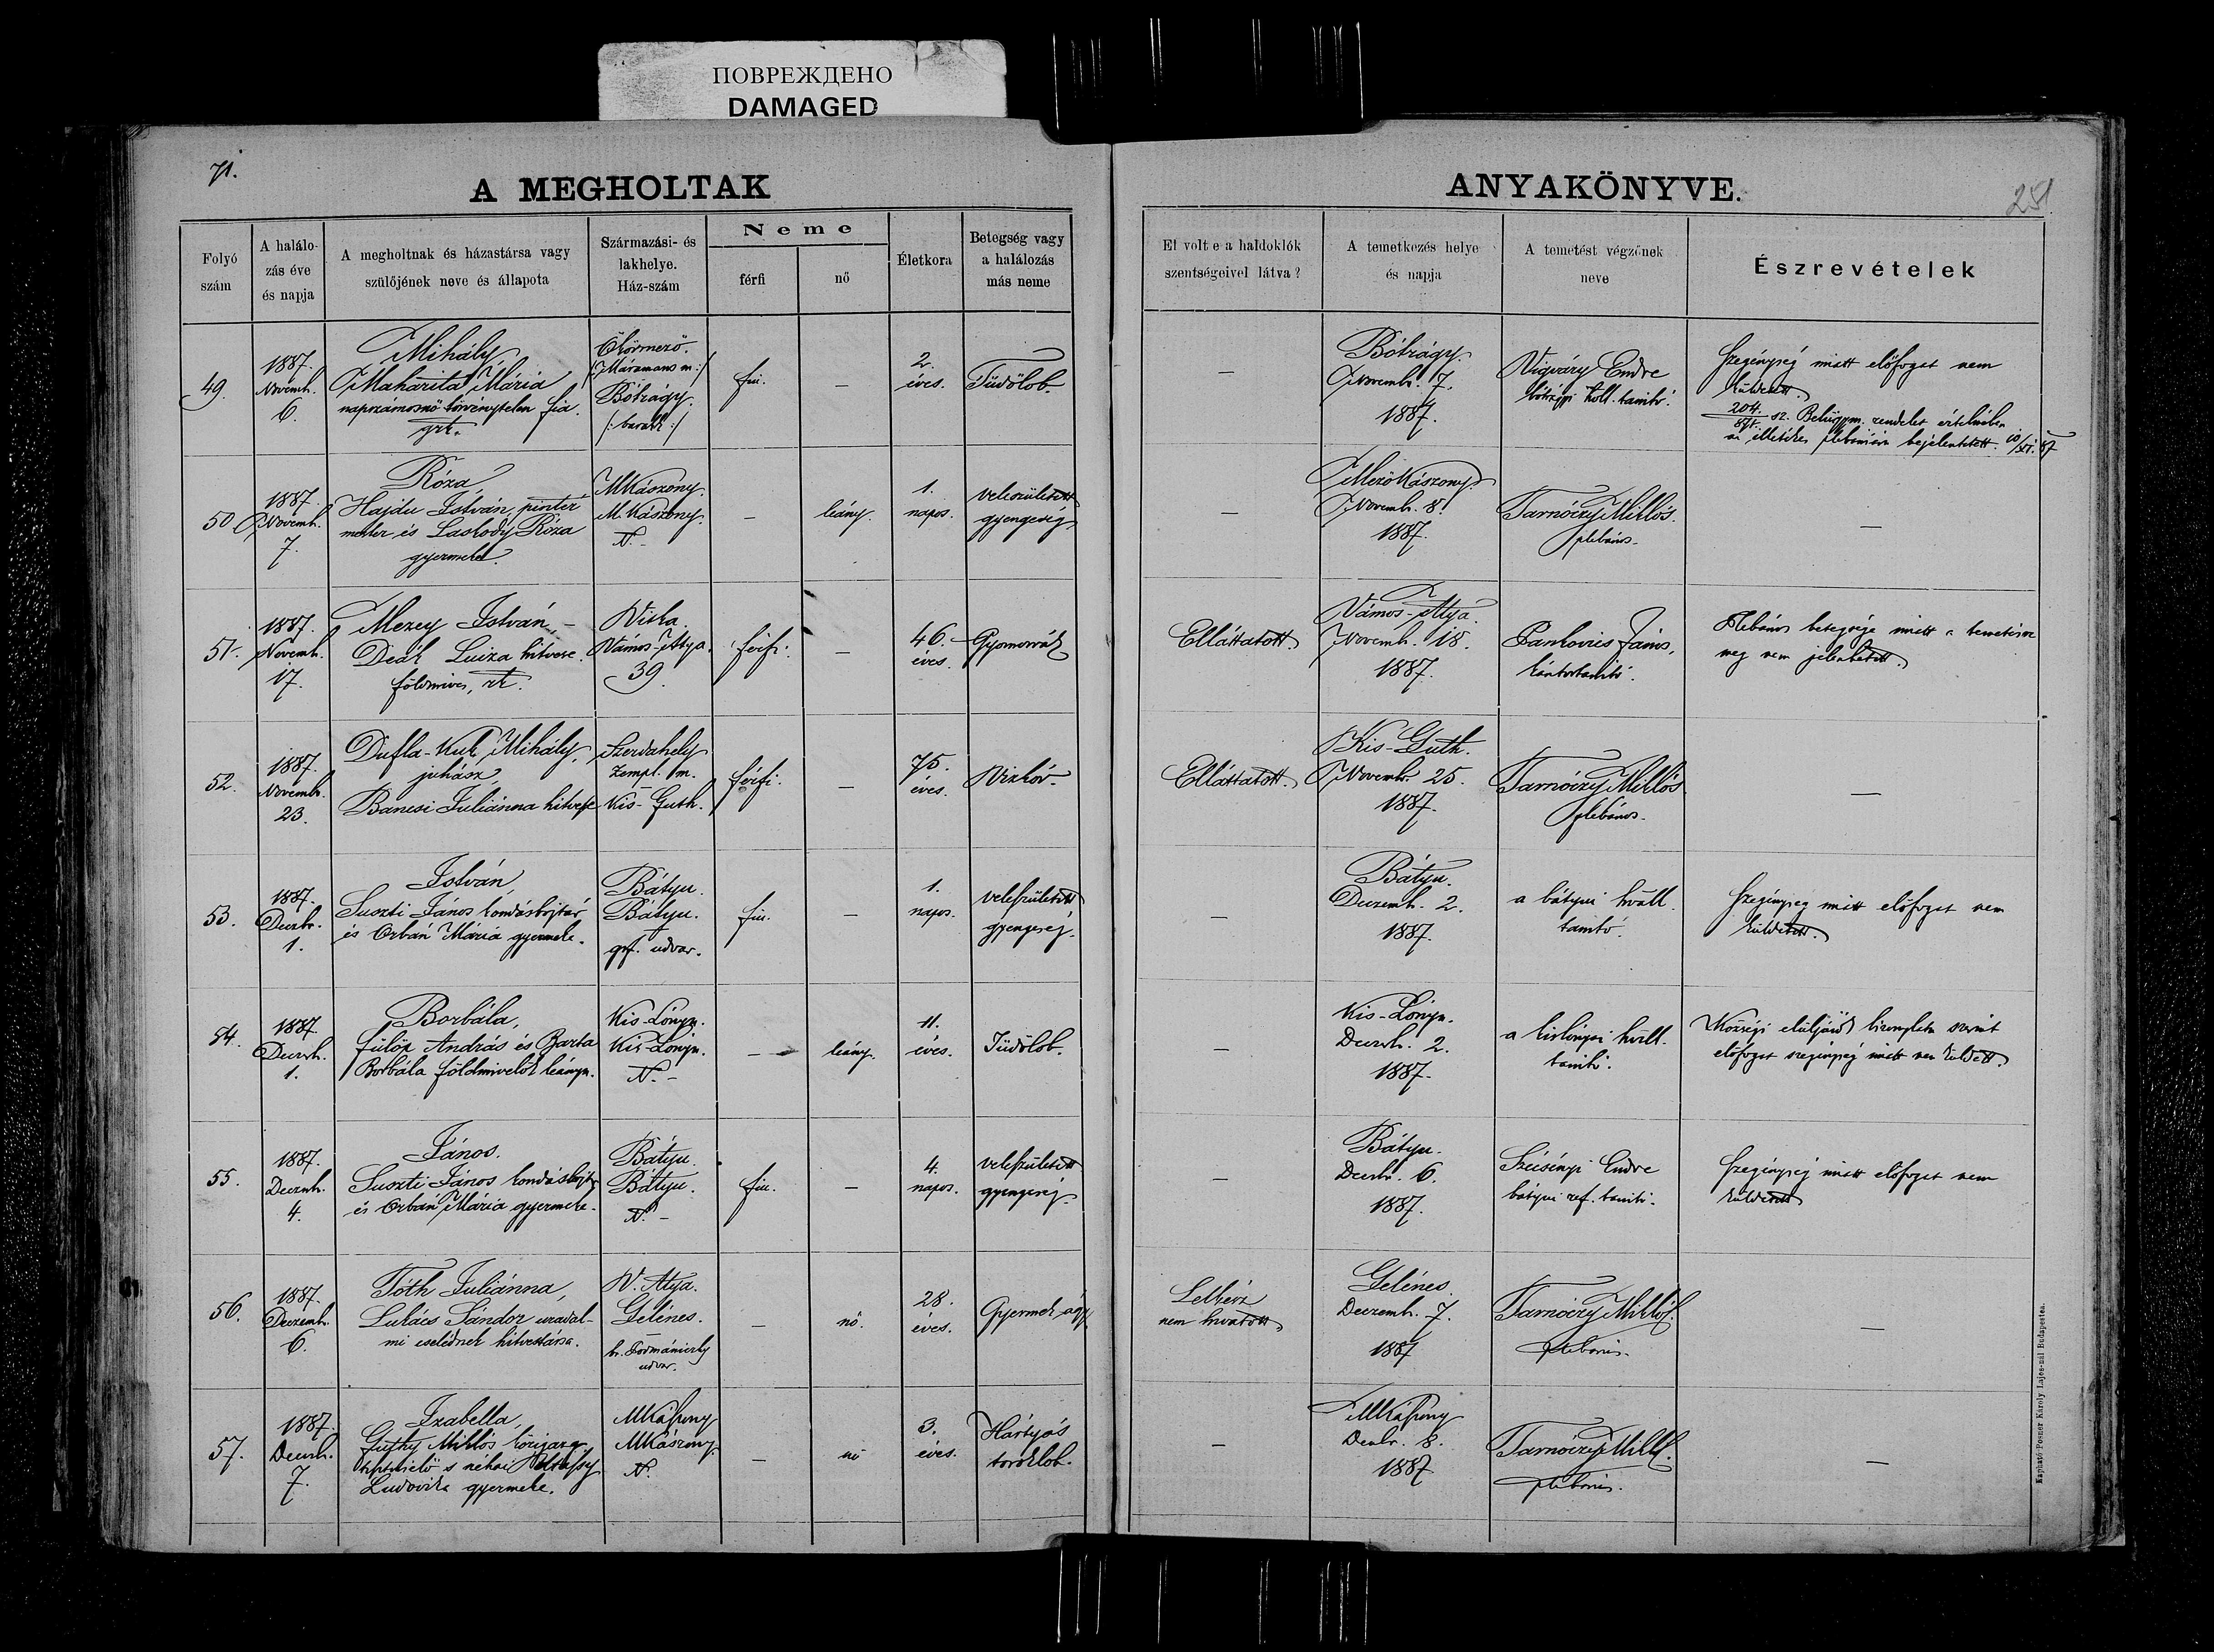 ПОВРЕЖДЕНО
DAMAGED
71.
A MEGHOLTAK
ANYAKÖNYVE.
251
Folyó szám
A halálo-zás éve és napja
A megholtnak és házastársa vagy szülőjének neve és állapota
Származási- és lakhelye. Ház-szám
Neme
férfi
nő
Életkora
Betegség vagy a halálozás más neme
El volt e a haldoklók szentségeivel látva?
A temetkezés helye és napja
A temetést végzőnek neve
Észrevételek
49.
1887.
Novemb.
6.
Mihály
Maharita Mária
napszámosnő törvénytelen fia.
grk.
Ökörmező.
/: Máramaros m :/
Bótrágy.
/: barakk :/
fiu.
—
2.
éves.
Tüdőlob.
—
Bótrágy.
Novemb. 7.
1887.
Vigváry Endre
bótrágyi koll. tanító.
Szegénység miatt előfogat nem
küldetett.
204./871. sz. Belügym. rendelet értelmében
az illetékes plébániára bejelentetett. 10/XI. 87
50
1887.
Novemb.
7.
Róza
Hajdu István, pintér
mester és Laskody Róza
gyermeke.
MKászony.
M.Kászony.
N. -
—
leány.
1.
napos.
veleszületett
gyengeség.
—
MezőKászony.
Novemb. 8.
1887.
Tarnóczy Miklós.
plebános.
—
51.
1887.
Novemb.
17.
Mezey István, -
Deák Luiza hitvese.
földmives, rk.
Vitka.
Vámos-Atya.
39.
férfi.
—
46.
éves.
Gyomorrák
Elláttatott.
Vámos-Atya.
Novemb. 18.
1887.
Pankovics János,
kántortanító.
Plébános betegsége miatt a temetésre
meg nem jelenhetett.
52.
1887.
Novemb.
23.
Dufla-Kuk Mihály,
juhász
Bancsi Juliánna hitvese
Szerdahely
Zempl. m.
Kis-Guth.
férfi.
—
75.
éves.
Vizkór.
Elláttatott.
Kis-Guth.
Novemb. 25.
1887.
Tarnóczy Miklós
plébános.
—
53.
1887.
Deczbr.
1.
István,
Suszti János kondásbojtár
és Orbán Mária gyermeke.
Bátyu.
Bátyu.
grf. udvar.
fiu.
—
1.
napos.
veleszületett
gyengeség.
—
Bátyu.
Decemb. 2.
1887.
a bátyui hváll.
tanító.
Szegénység miatt előfogat nem
küldetett.
54.
1887
Deczb.
1.
Borbála,
Fülöp András és Barta
Borbála földmivelők leánya.
Kis-Lónya.
Kis-Lónya.
N. -
—
leány.
11.
éves.
Tüdőlob.
—
Kis-Lónya.
Deczb. 2.
1887.
a kislónyai hváll.
tanító.
Községi elüljáró bizonylata szerint
előfogat szegénység miatt nem küldetett.
55.
1887.
Deczmb.
4.
János.
Suszti János kondásbojtár
és Orbán Mária gyermeke.
Bátyu.
Bátyu.
N. -
fiu.
—
4.
napos.
veleszületett
gyengeség.
—
Bátyu.
Deczbr. 6.
1887.
Szécsényi Endre
bátyui ref. tanító.
Szegénység miatt előfogat nem
küldetett.
56.
1887.
Deczemb.
6.
Tóth Juliánna,
Lukács Sándor uradal-
mi cselédnek hitvestársa.
V. Atya.
Gelénes.
udvar.
—
nő.
28.
éves.
Gyermek ágy.
Lelkész
nem hivatott.
Gelénes.
Deczemb. 7.
1887
Tarnóczy Miklós.
plébános.
—
57.
1887.
Deczb.
7.
Izabella,
Guthy Miklós közigazg.
s néhai
Ludovika gyermeke.
MKászony
MKászony.
N.
—
nő
3.
éves.
Hártyás
toroklob.
—
MKászony
Decbr. 8.
1887
Tarnóczy Mikl.
plébános.
—
Kapható Posner Károly Lajos-nál Budapesten.